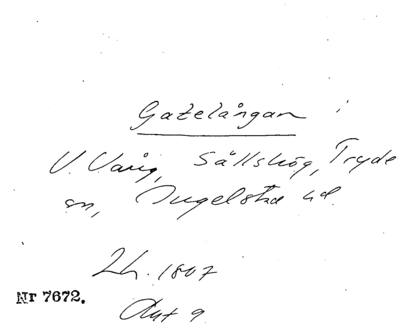 Gatelångan
V. Vång, Sällshög, Tryde
sn, Ingelstad hd.
Lh. 1807
Nr 7672.
Akt 9